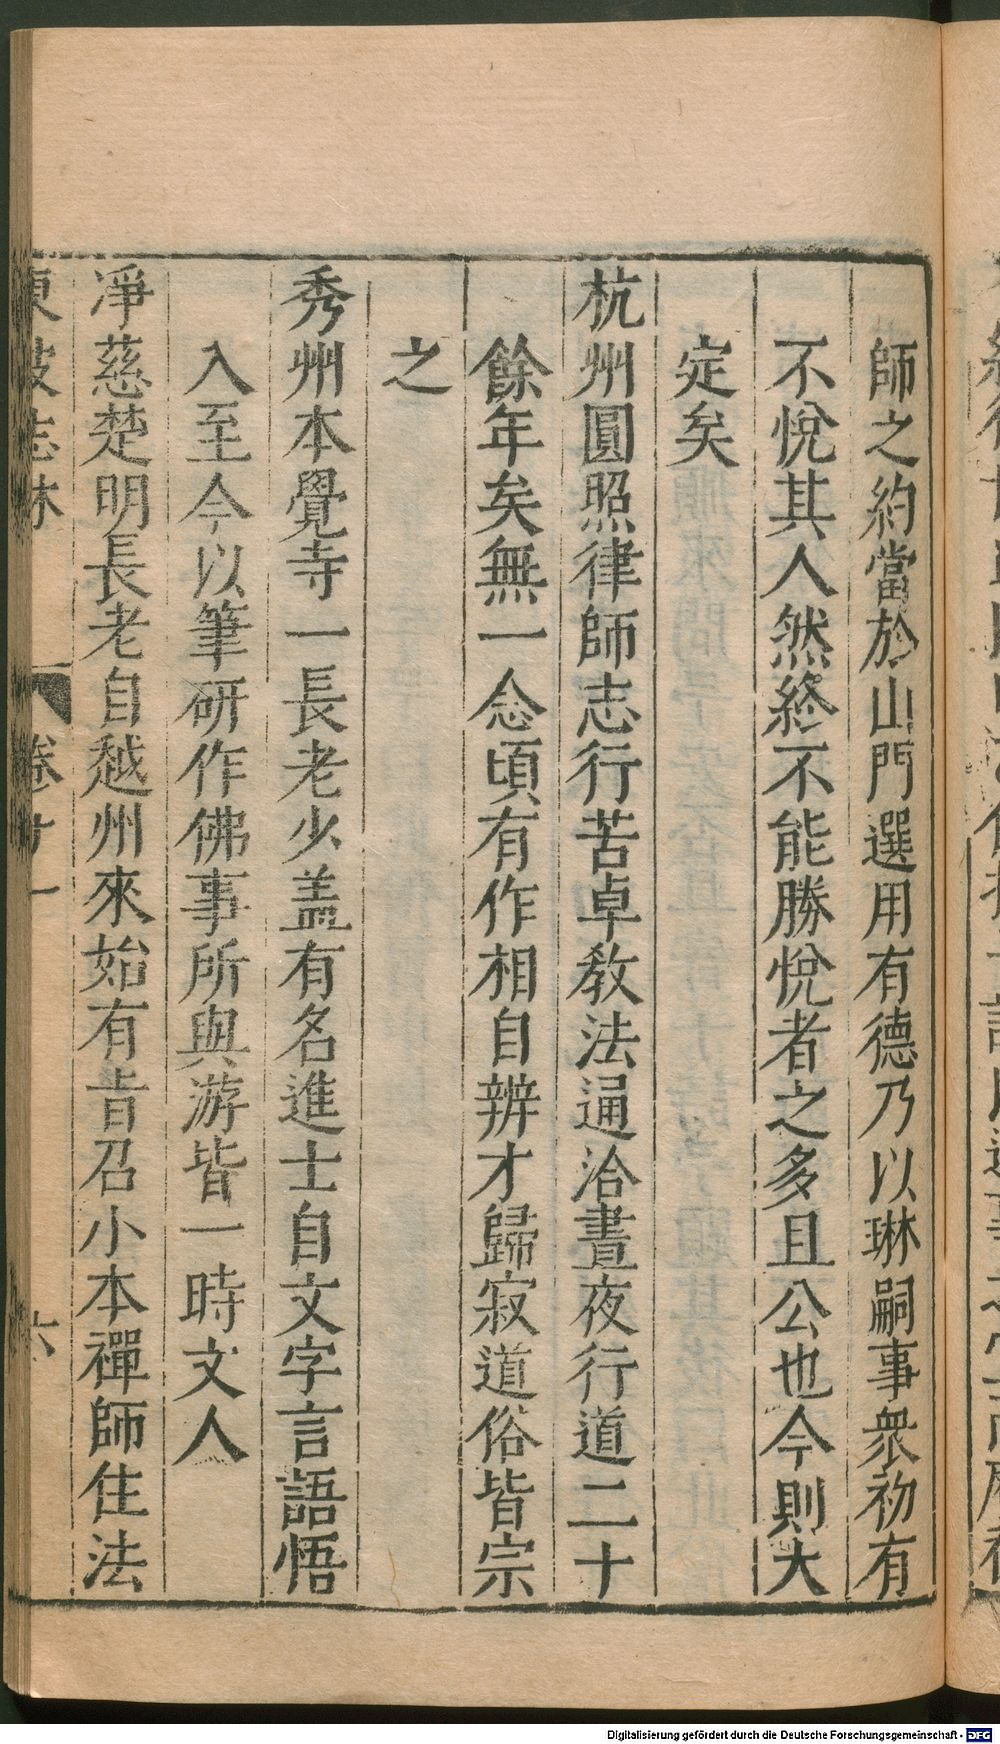 師之約當於山門選用有德乃以琳嗣事衆初有
不悅其人然終不能勝悅者之多且公也今則大
定矣
杭州圓照律師志行苦卓教法通洽晝夜行道二十
餘年矣無一念頃有作相自辨才歸寂道俗皆宗
之
秀州本覺寺一長老少盖有名進士自文字言語悟
入至今以筆研作佛事所與游皆一時文人
凈慈楚明長老自越州來始有旨召小本禪師住法
東坡志林 卷廿一 六
Digitalisierung gefördert durch die Deutsche Forschungsgemeinschaft - DFG